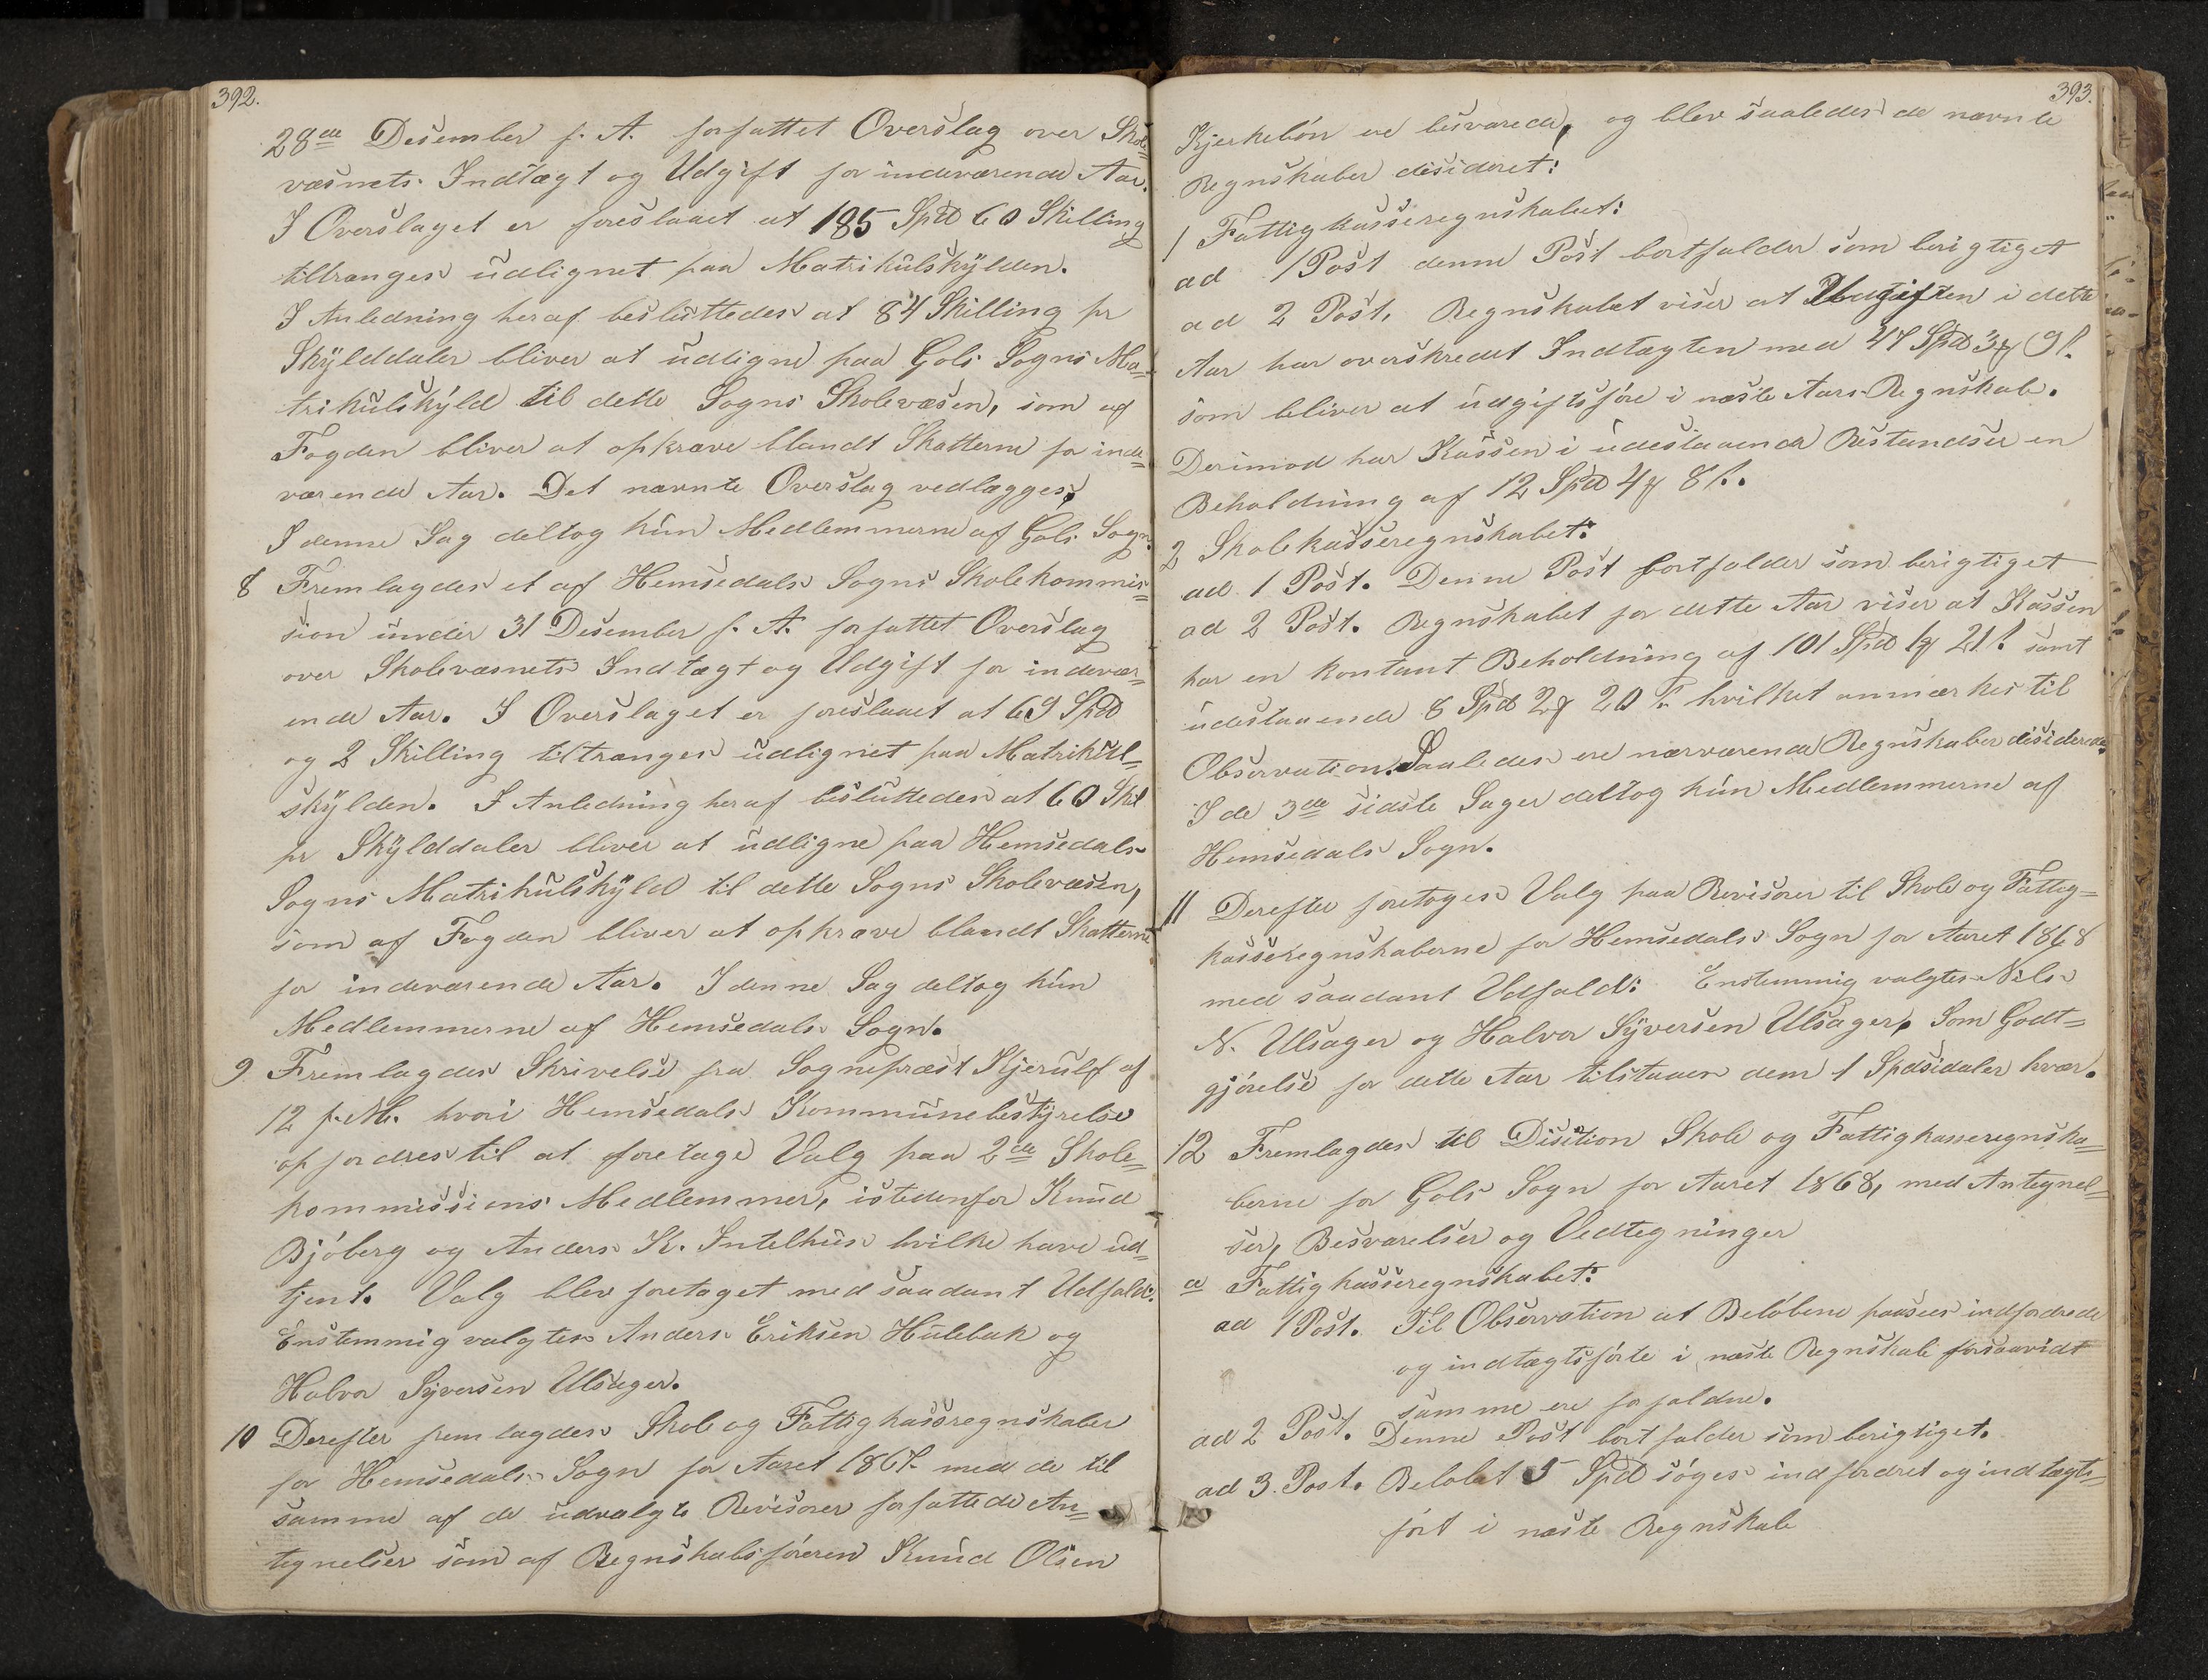 392.
28de Desember f. A. forfattet Overslag over Skole=
væsnets Indtægt og Udgift for indeværende Aar.
I Overslaget er foreslaaet at 185 Spd 60 Skilling
tiltrænges udlignet paa Matrikulskylden.
I Anledning heraf besluttedes at 84 Skilling pr
Skylddaler bliver at udligne paa Gols Sogns Ma=
trikulskyld til dette Sogns Skolevæsen, som af
Fogden bliver at opkræve blandt Skatterne for inde=
værende Aar. Det nævnte Overslag vedlægges.
I denne Sag deltog kun Medlemmerne af Gols Sogn.
8 Fremlagdes et af Hemsedals Sogns Skolekommis=
sion under 31 Desember f. A. forfattet Overslag
over Skolevæsnets Indtægt og Udgift for indevær=
ende Aar. I Overslaget er foreslaaet at 69 Spd
og 2 Skilling tiltrænges udlignet paa Matrikul=
skylden. I Anledning heraf besluttedes at 60 Skil
pr Skylddaler bliver at udligne paa Hemsedals
Sogns Matrikulskyld til dette Sogns Skolevæsen,
som af Fogden bliver at opkræve blandt Skatterne
for indeværende Aar. I denne Sag deltog kun
Medlemmerne af Hemsedals Sogn.
9. Fremlagdes Skrivelse fra Sognepræst Kjerulf af
12 f. M. hvori Hemsedals Kommunebestyrelse
opfordres til at foretage Valg paa 2de Skole=
kommissions Medlemmer, istedenfor Knud
Bjøberg og Anders K. Intelhus hvilke have ud=
tjent. Valg blev foretaget med saadant Udfald:
Enstemmig valgtes Anders Eriksen Hulebak og
Halvor Syversen Ulsager.
10 Derefter fremlagdes Skole og Fattigkasseregnskaber
for Hemsedals Sogn for Aaret 1867 med de til
samme af de udvalgte Revisorer forfattede An=
tegnelser som af Regnskabsføreren Knud Olsen
393.
Kjerkebøn ere besvarede, og blev saaledes de nævnte
Regnskaber desideret:
1 Fattigkasseregnskabet:
ad 1 Post denne Post bortfalder som berigtiget
ad 2 Post, Regnskabet viser at Udgiften i dette
Aar har overskredet Indtægten med 47 Spd 3 9 s.
som bliver at udgiftsføre i næste Aars Regnskab.
Derimod har Kassen i udestaaende Restandser en
Beholdning af 12 Spd 4 8 s.
2 Skolekasseregnskabet:
ad 1 Post. Denne Post bortfalder som berigtiget
ad 2 Post. Regnskabet for dette Aar viser at Kassen
har en kontant Beholdning af 101 Spd 1 21 s. samt
udestaaende 8 Spd 2 20 s. hvilket anmærkes til
Observation. Saaledes ere nærværende Regnskaber desiderede.
I de 3de sidste Sager deltog kun Medlemmerne af
Hemsedals Sogn.
11 Derefter foretoges Valg paa Revisorer til Skole og Fattig=
kasseregnskaberne for Hemsedals Sogn for Aaret 1868
med saadant Udfald: Enstemmig valgtes Nils
N. Ulsager og Halvor Syversen Ulsager, Som Godt=
gjørelse for dette Aar tilstaaes dem 1 Spesidaler hver.
12 Fremlagdes til Disition Skole og Fattigkasseregnska=
berne for Gols Sogn for Aaret 1868, med Antegnel=
ser, Besvarelser og Vedtegninger
a Fattigkasseregnskabet:
ad 1 Post. Til Observation at Beløbene paasees indfordrede
og indtægtsførte i næste Regnskab forsaavidt
samme ere forfaldne.
ad 2 Post. Denne Post bortfalder som berigtiget.
ad 3. Post. Beløbet 5 Spd søges indfordret og indtægts=
ført i næste Regnskab